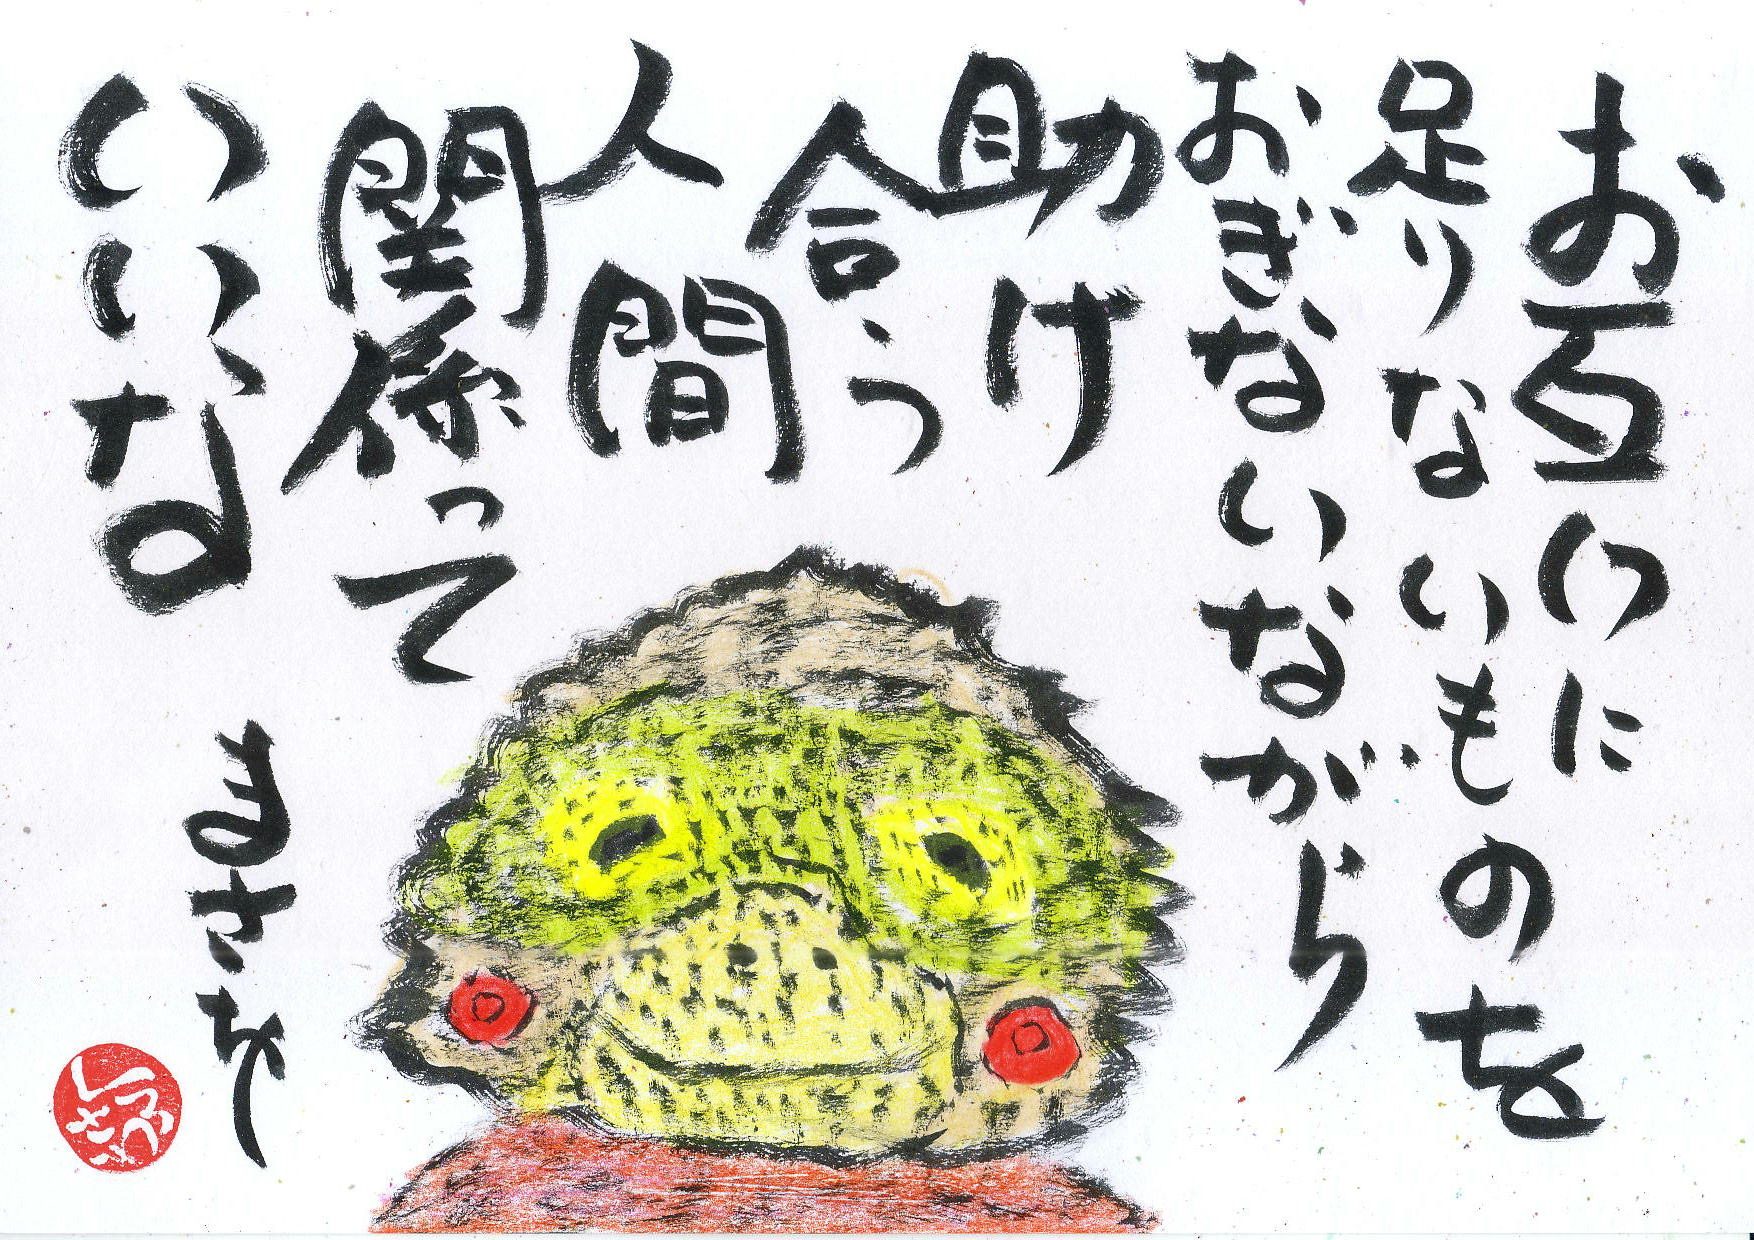 お互いに
足りないものを
おぎないながら
助け
合う
人間
関係って
いいな